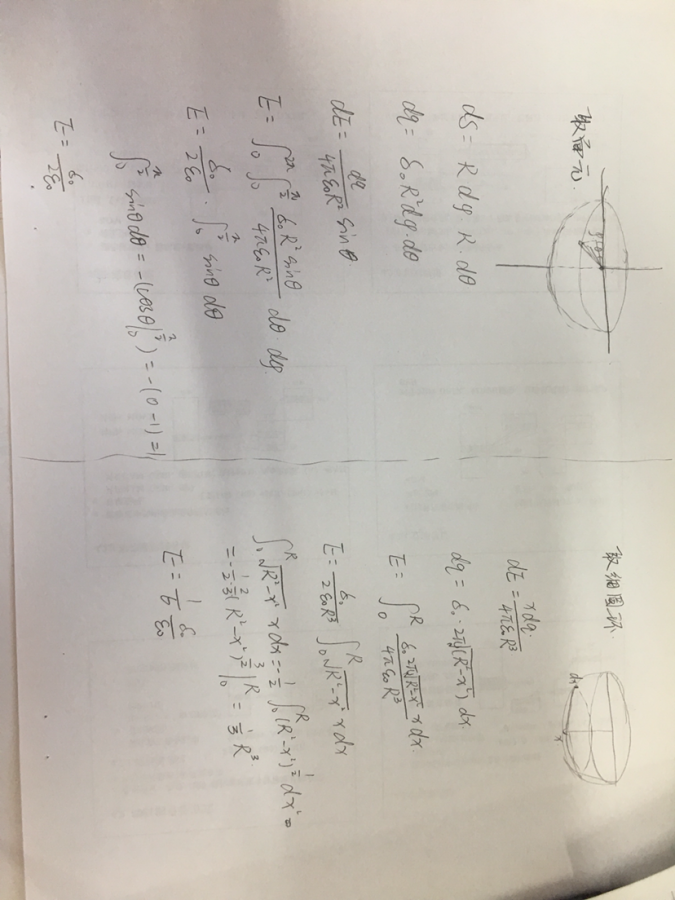 取面元.
dS = R dφ R·dθ
dq = δ₀R²dφ·dθ
dE = dq/4πε₀R² sinθ
E = ∫₀^2π ∫₀^π/2 δ₀R² sinθ/4πε₀R² dθ·dφ
E = δ₀/2ε₀ · ∫₀^π/2 sinθ dθ
∫₀^π/2 sinθdθ = -(cosθ|₀^π/2) = -(0-1)=1
E = δ₀/2ε₀
取细圆环.
dq
x
dE = xdq/4πε₀R³
dq = δ₀·2π√(R²-x²) dx
E = ∫₀^R δ₀2π√R²-x² x dx/4πε₀R³
E = δ₀/2ε₀R³ ∫₀^R √R²-x² x dx
∫₀^R √R²-x² x dx = -1/2 ∫₀^R (R²-x²)^1/2 dx² =
= -1/2·2/3(R²-x²)^3/2|₀^R = 1/3 R³
E = 1/6 δ₀/ε₀